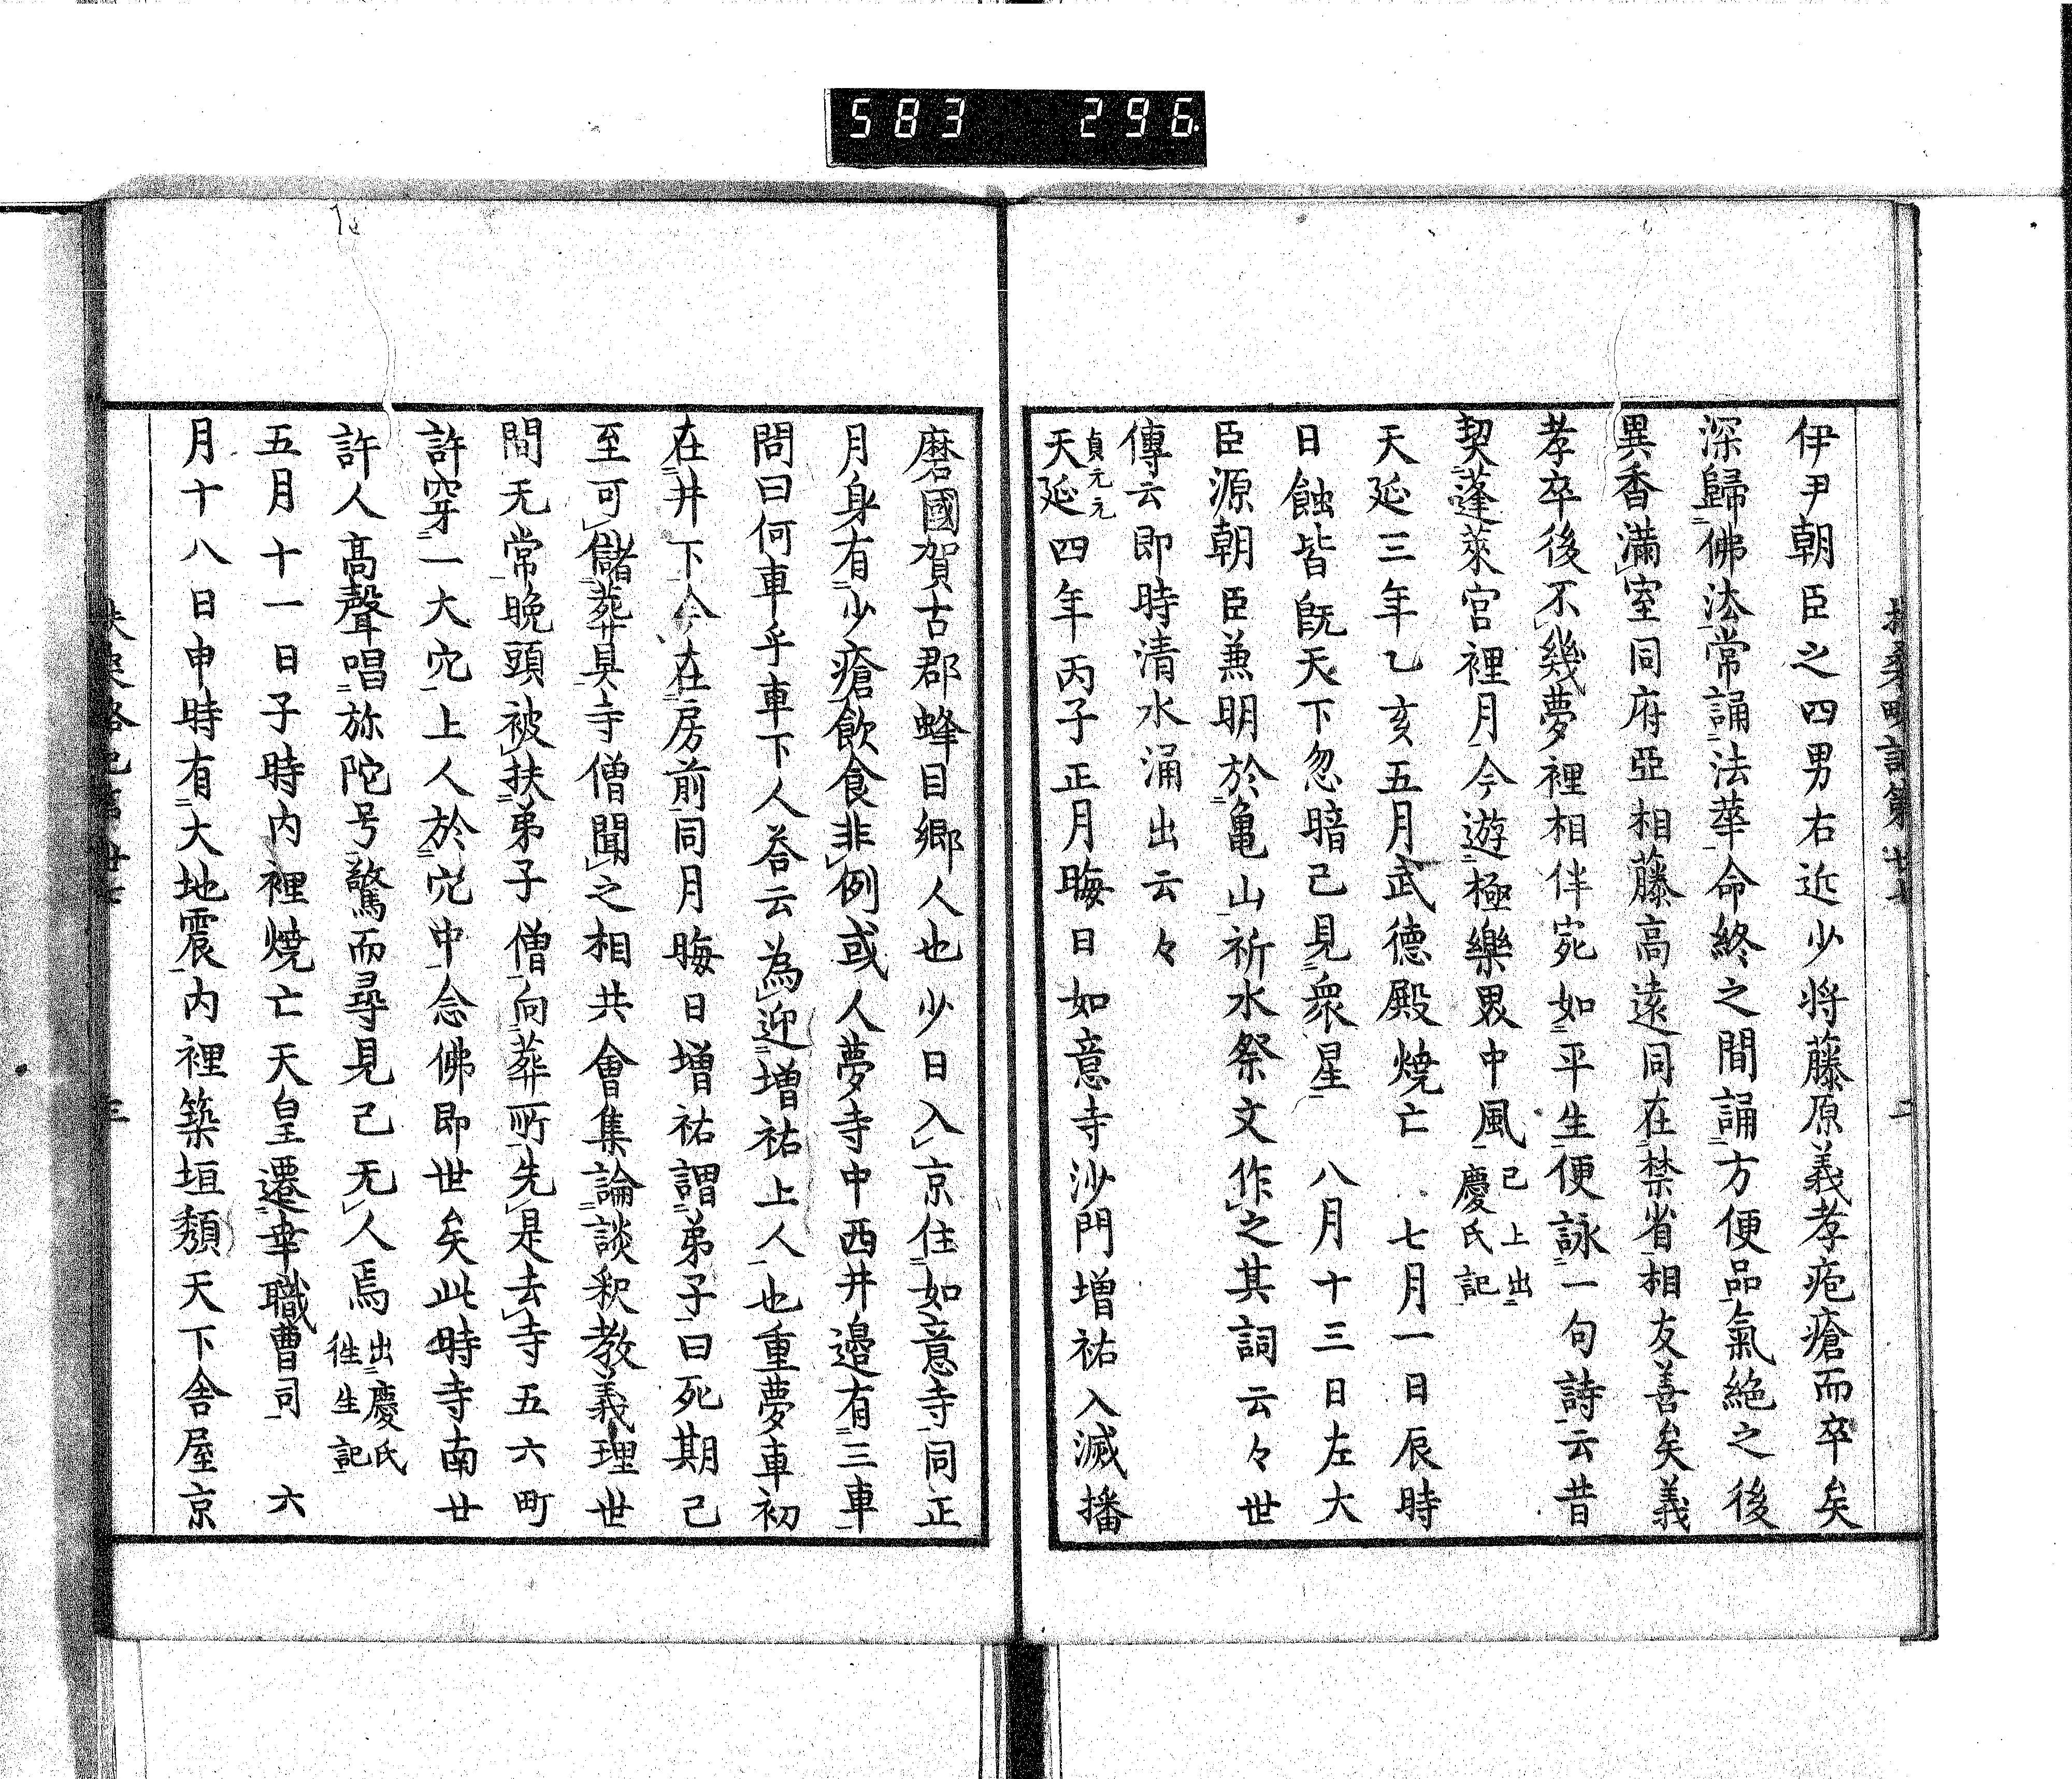 583 296
扶桑略記第廿七 二
伊尹朝臣之四男右近少将藤原義孝疱瘡而卒矣
深歸佛法常誦法華命終之間誦方便品氣絶之後
異香滿室同府亞相藤高遠同在禁省相友善矣義
孝卒後不幾夢裡相伴宛如平生便詠一句詩云昔
契蓬萊宮裡月今遊極樂界中風已上出慶氏記
天延三年乙亥五月武德殿燒亡 七月一日辰時
日蝕皆既天下忽暗已見衆星 八月十三日左大
臣源朝臣兼明於亀山祈水祭文作之其詞云々世
傳云即時清水涌出云々
貞元元
天延四年丙子正月晦日如意寺沙門增祐入滅播
磨國賀古郡蜂目郷人也少日入京住如意寺同正
月身有少瘡飲食非例或人夢寺中西井邉有三車
問曰何車乎車下人荅云為迎增祐上人也重夢車初
在井下今在房前同月晦日増祐謂弟子曰死期已
至可儲葬具寺僧聞之相共會集論談釈教義理世
間无常晩頭被扶弟子僧向葬所先是去寺五六町
許穿一大穴上人於穴中念佛即世矣此時寺南廿
許人高聲唱弥陀号驚而尋見已无人焉出慶氏往生記
五月十一日子時内裡燒亡天皇遷幸職曹司 六
月十八日申時有大地震内裡築垣頽天下舎屋京
扶桑略記第廿七 三